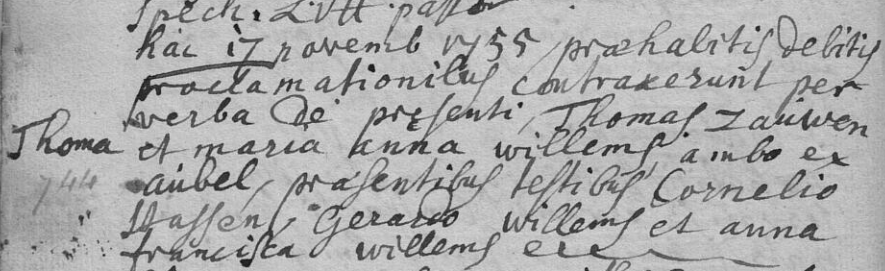 hac 17 novemb 1755 præhabitis debitis
proclamationibus contraxerunt per
verba de presenti, Thomas Zauwen
Thoma et maria anna willems ambo ex
744 aubel, præsentibus testibus Cornelio
Stassen, Gerardo willems et anna
francisca willems etc